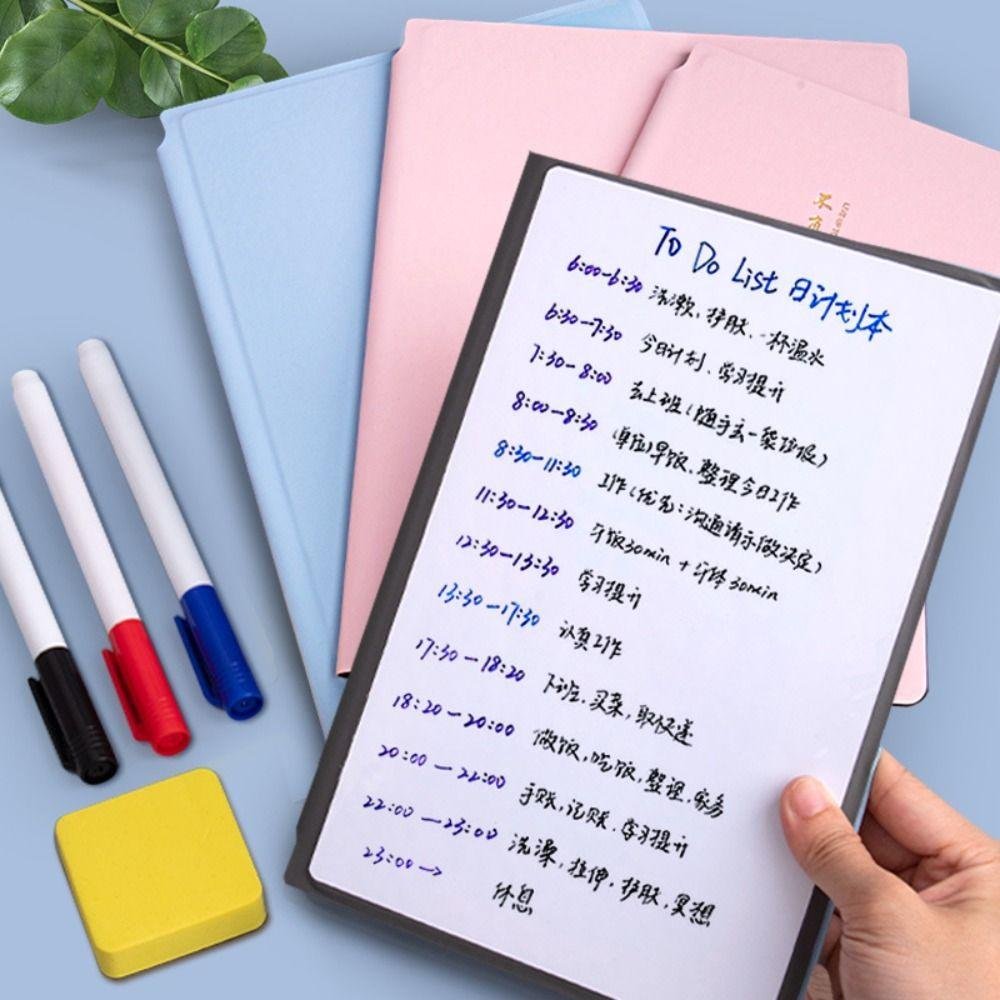 不负
To Do List 日计划本
6:00-6:30 洗漱,护肤、一杯温水
6:30-7:30 今日计划、学习提升
7:30-8:00 去上班(随手丢一袋垃圾)
8:00-8:30 (单位)早饭、整理今日工作
8:30-11:30 工作(优先:沟通请示做决定)
11:30-12:30 午饭30min+午休30min
12:30-13:30 学习提升
13:30-17:30 认真工作
17:30-18:20 下班、买菜,取快递
18:20-20:00 做饭,吃饭,整理,家务
20:00-22:00 手账,记账、学习提升
22:00-23:00 洗澡,拉伸,护肤,冥想
23:00→ 休息